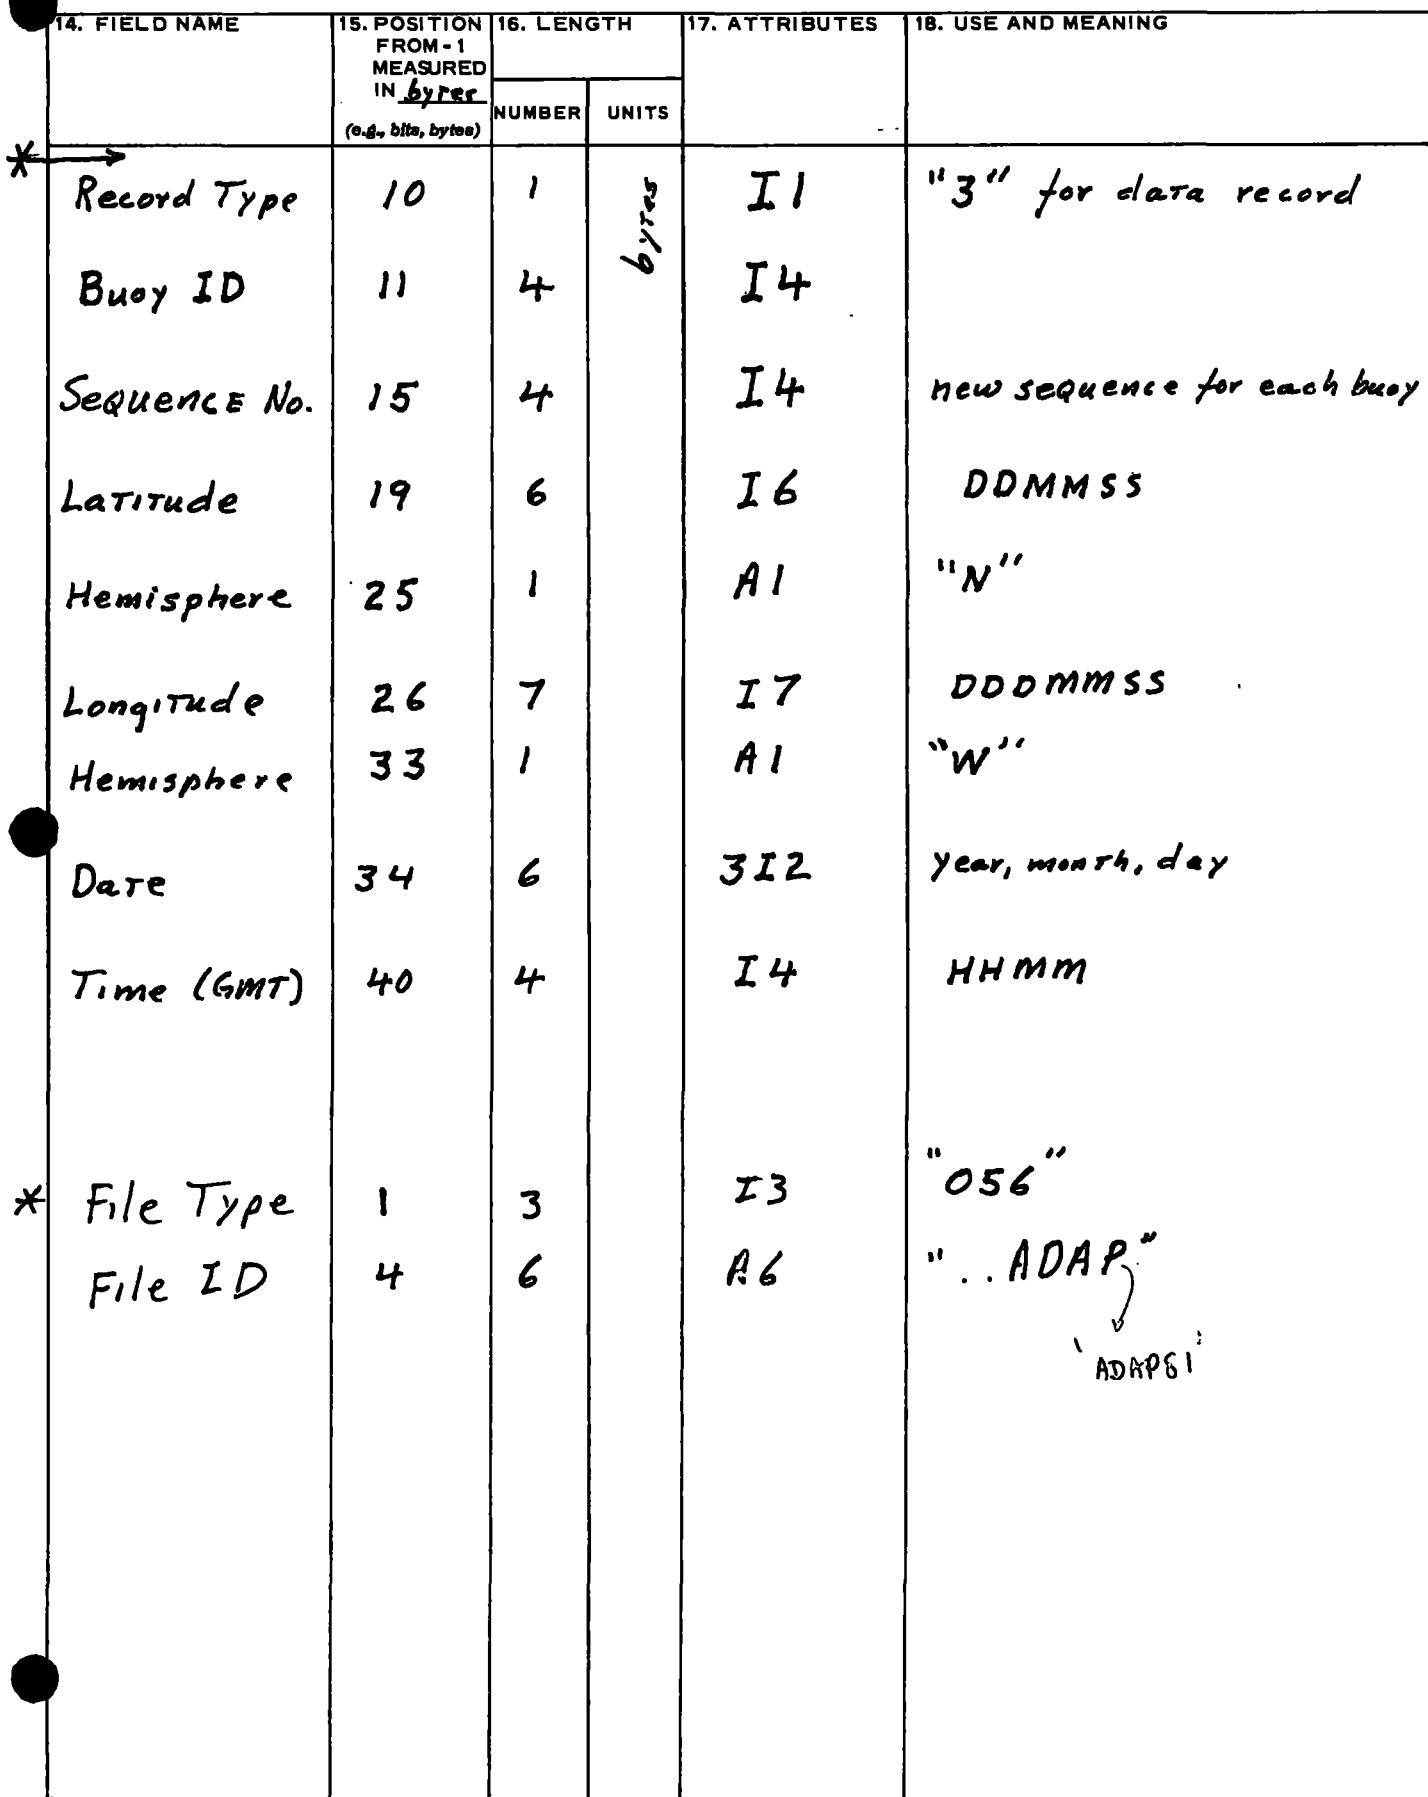 14. FIELD NAME 15. POSITION FROM - 1 MEASURED IN bytes (e.g., bits, bytes) 16. LENGTH NUMBER UNITS 17. ATTRIBUTES 18. USE AND MEANING
* Record Type 10 1 bytes I1 "3" for data record
Buoy ID 11 4 I4
Sequence No. 15 4 I4 new sequence for each buoy
Latitude 19 6 I6 DDMMSS
Hemisphere 25 1 A1 "N"
Longitude 26 7 I7 DDDMMSS
Hemisphere 33 1 A1 "W"
Date 34 6 3I2 year, month, day
Time (GMT) 40 4 I4 HHMM
* File Type 1 3 I3 "056"
File ID 4 6 A6 "..ADAP"